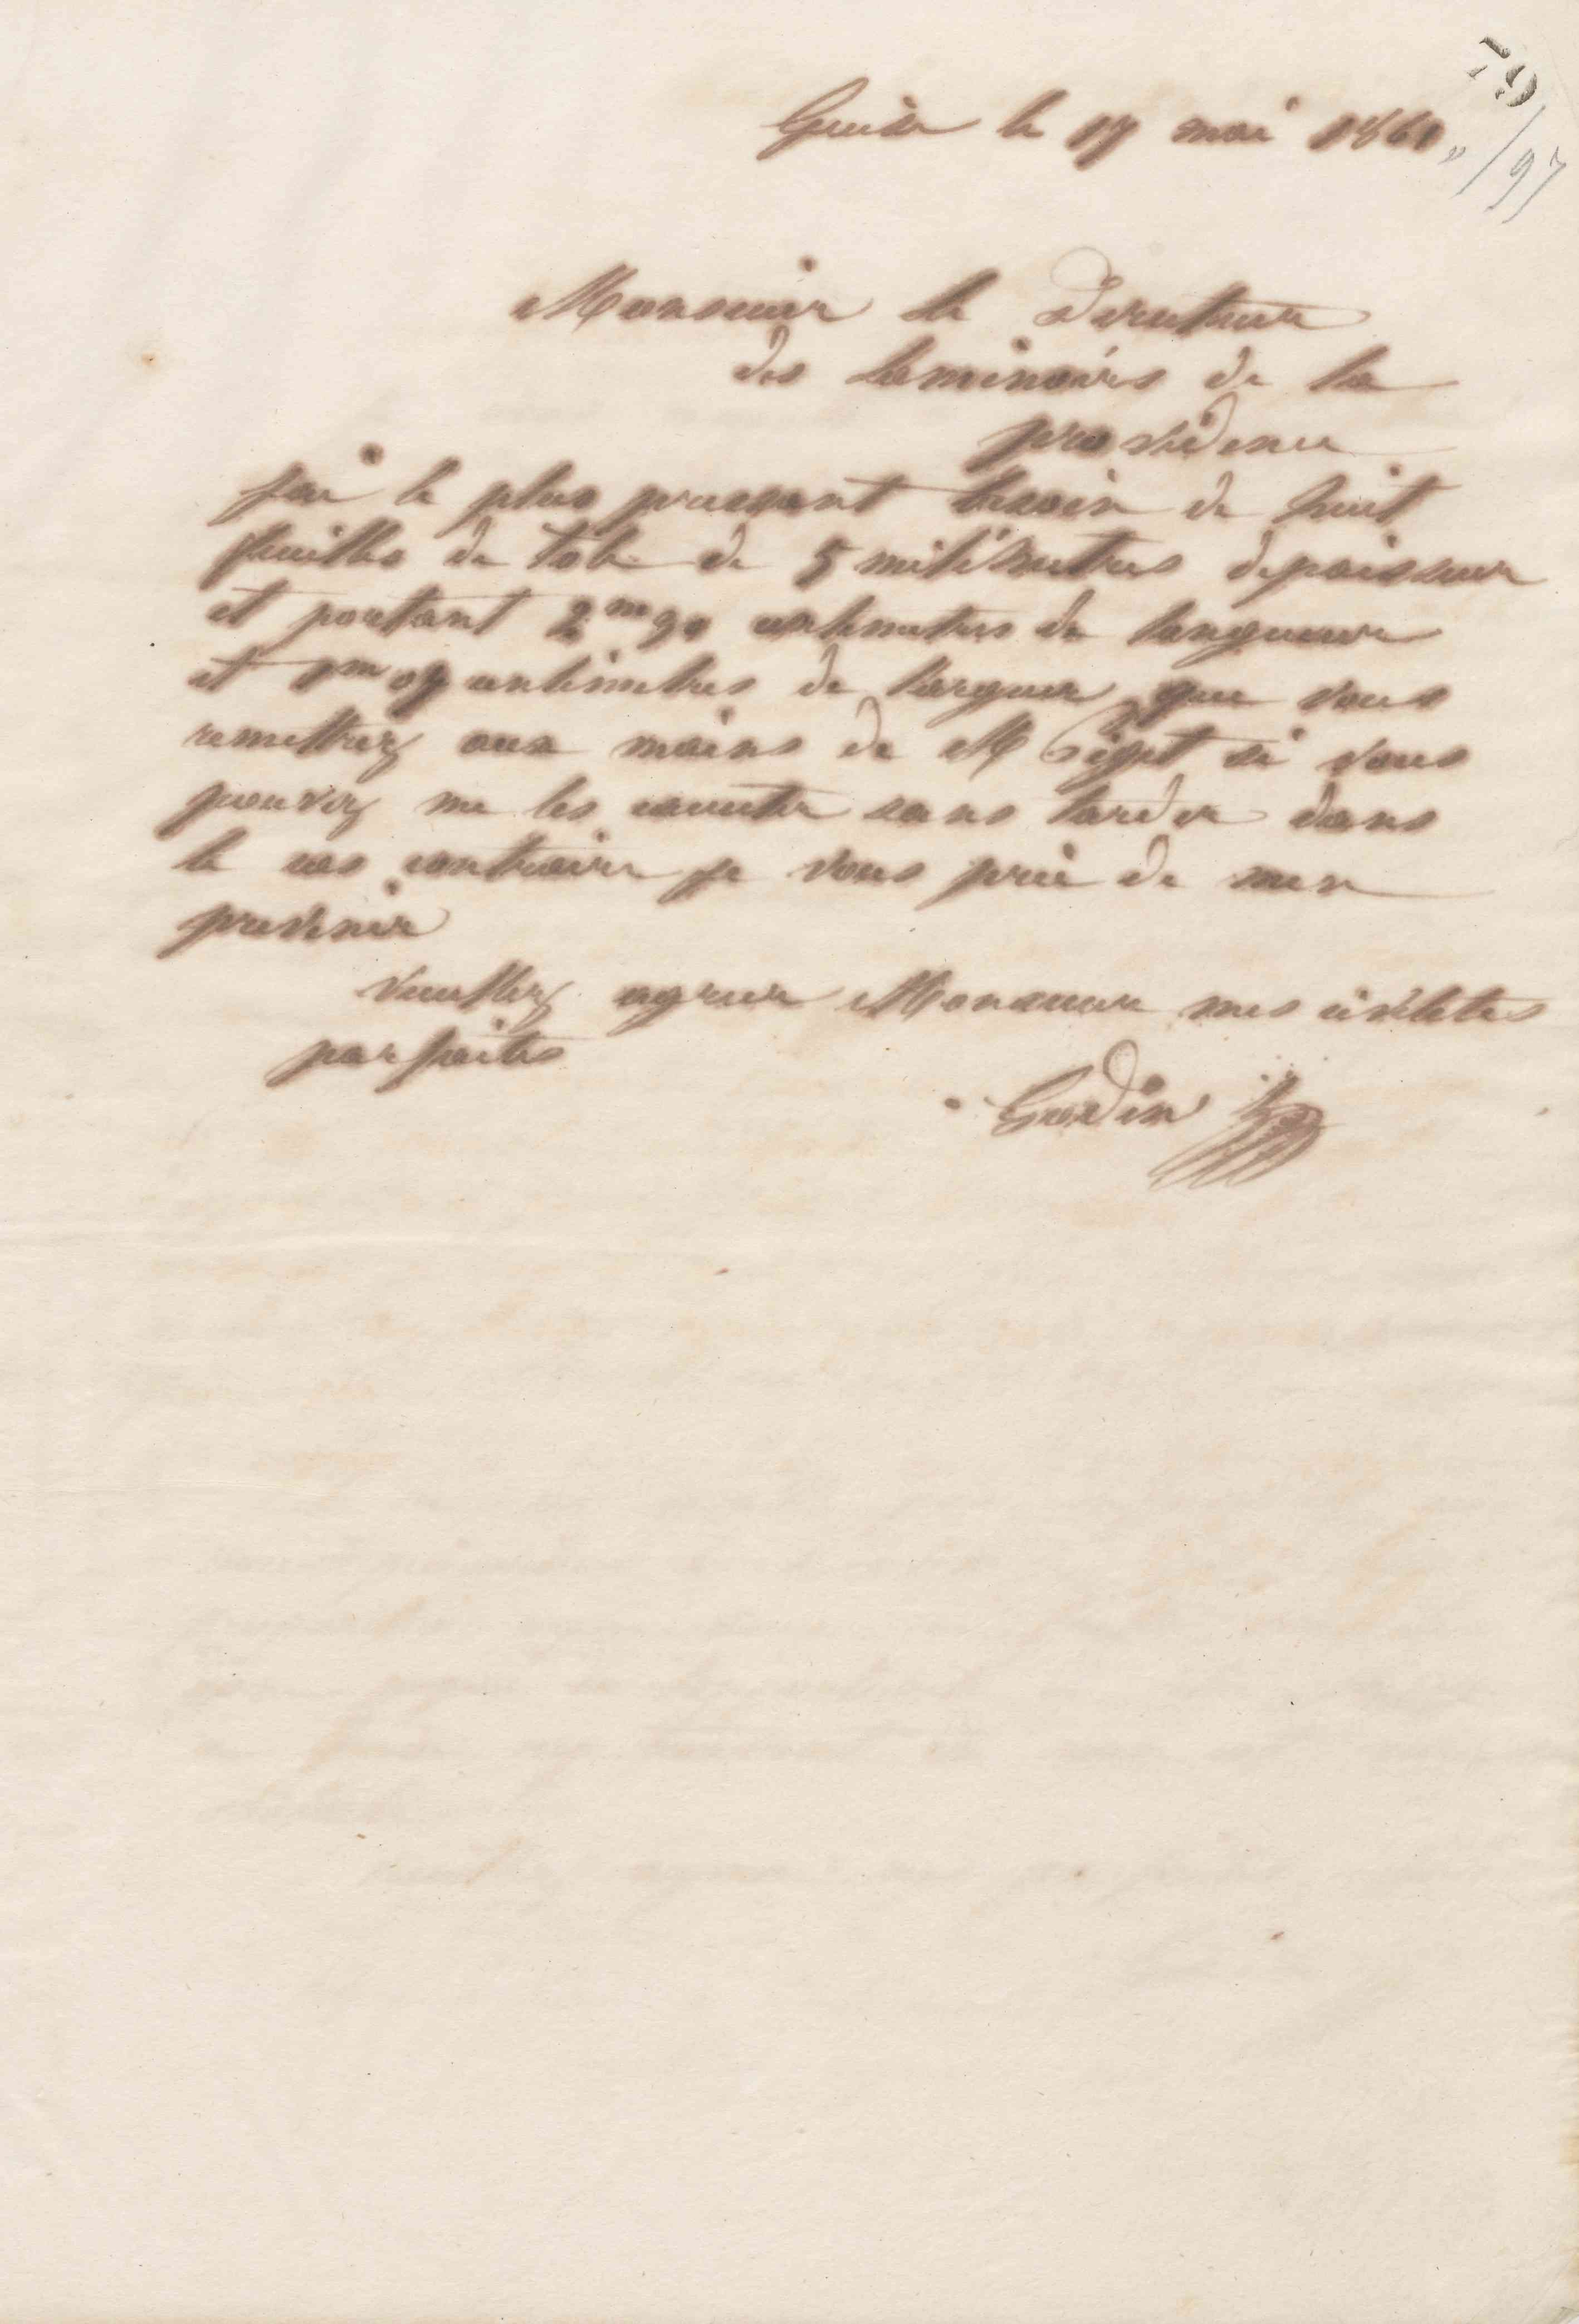 79
/97
Guise le 17 mai 1861
Monsieur le Directeur
des laminoirs de la
providence
J'ai le plus pressant besoin de huit
feuilles de tole de 5 milimetres depaisseur
et portant 2m 90 centimetres de longueur
et 1m 07 centimetres de largeur que vous
remettrez aux mains de M si vous
pouvez me les sans tarder dans
le cas contraire je vous prie de men
prevenir
veuillez agreer Monsieur mes civilités
parfaites
Godin